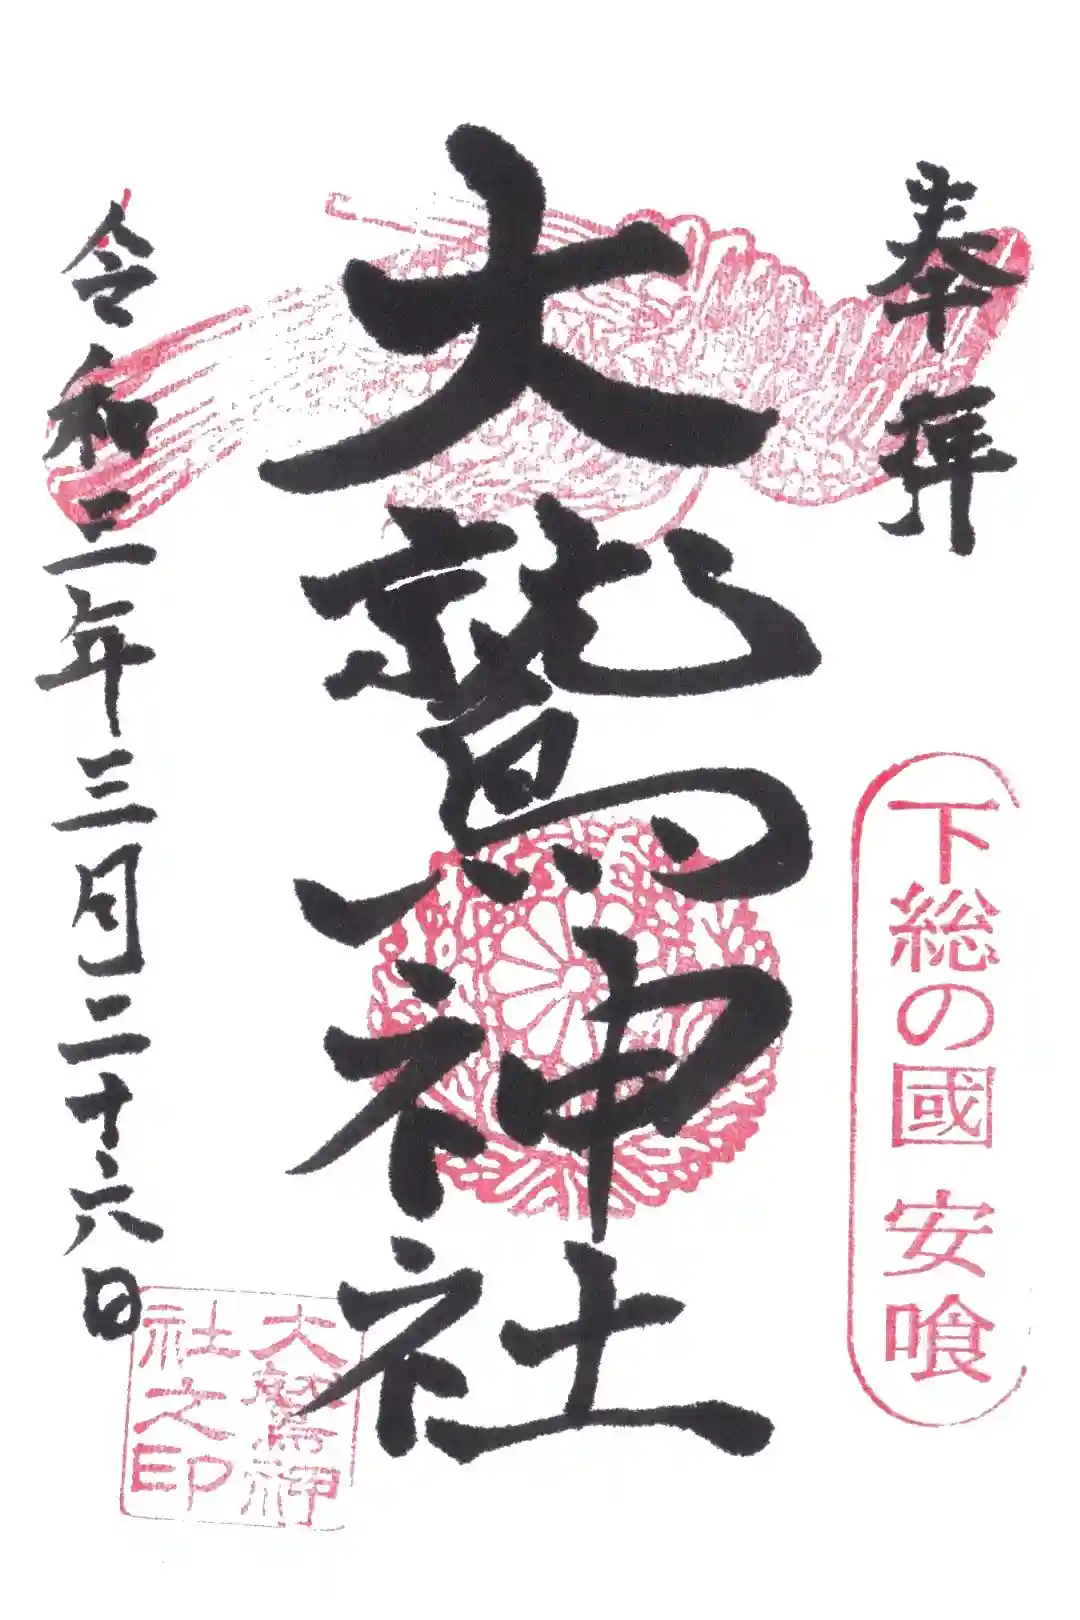 奉拝
下総の國 安喰
大鷲神社
令和三年三月二十六日
大鷲神
社之印